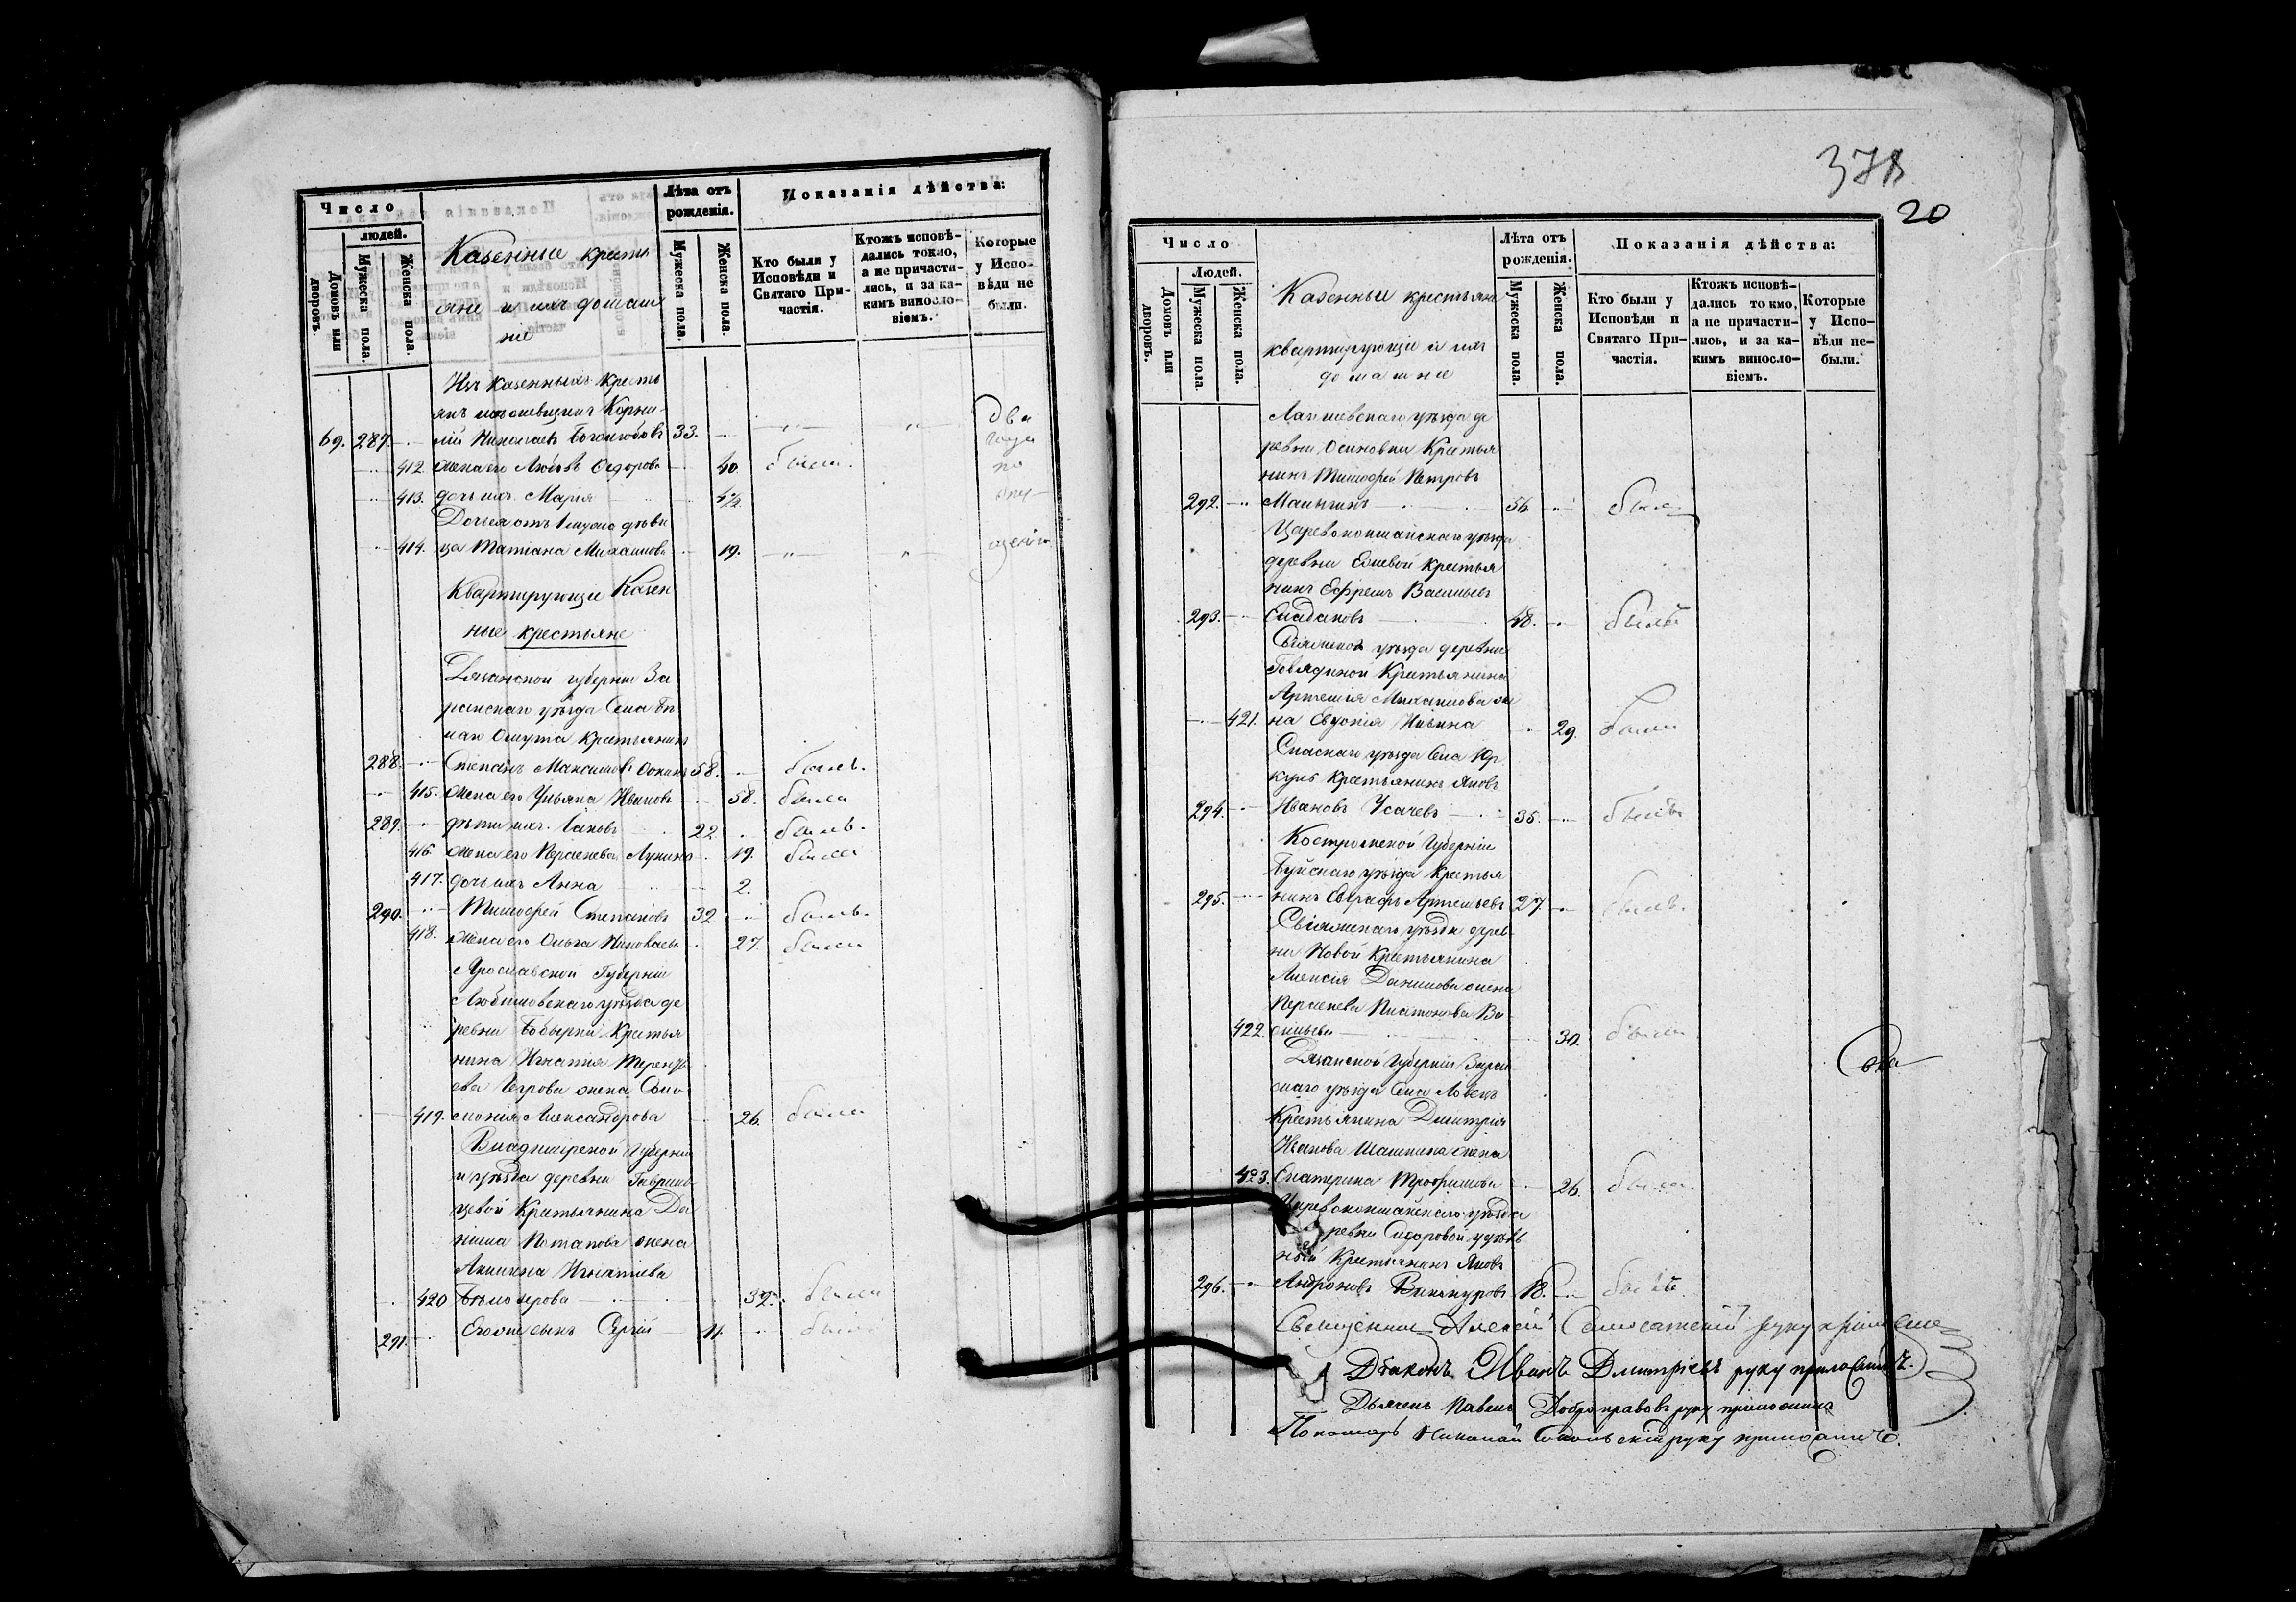 Число
людей.
Домовъ или дворовъ.
Мужеска пола.
Женска пола.
Казенные кресть
яне и ихъ домаш
ніе
Лѣта отъ рожденія.
Мужеска пола.
Женска пола.
Показанія дѣйства:
Кто были у Исповѣди и Святаго Причастія.
Ктожъ исповѣдались токмо, а не причастились, и за какимъ винословіемъ.
Которые у Исповѣди не были.
Изъ казенныхъ кресть
янъ Корни-
69. 287. лій Николаевъ Боголюбовъ 33. два
412. жена его Любовь Ѳедорова 40. была. по
413. дочь ихъ Марія
Дочь ея отъ 1 мужа дѣви
414. ца Татіана Михаилова 19.
Квартирующіе Казен
ные крестьяне
Рязанской губерніи За
райскаго уѣзда Села Бѣ
лаго Омута Крестьянинъ
288. Степанъ Максимовъ 58. былъ.
415. жена его Ульяна Иванова 58. была
289. дѣти ихъ Іаковъ 22 былъ.
416. жена его Параскева Лукина 19. была
417. дочь ихъ Анна 2.
290. Тимофей Степановъ 32 былъ.
418. жена его Ольга Николаева 27. была
Ярославской Губерніи
Любимовскаго уѣзда де
ревни Крестья
нина Игнатія Терентъ
ева Петрова жена Соло
419. монія Александрова 26. была
Владимірской Губерніи
и уѣзда деревни Гаврил
цевой Крестьянина Да
нила Потапова жена
Акилина Игнатіева
420 Бѣлозерова 32. была
291. сынъ Сергій 11. былъ
378
20
Число
Людей.
Домовъ или дворовъ.
Мужеска пола.
Женска пола.
Казенные крестьяне
квартирующіе и ихъ
домашніе
Лѣта отъ рожденія.
Мужеска пола.
Женска пола.
Показанія дѣйства:
Кто были у Исповѣди и Святаго Причастія.
Ктожъ исповѣдались токмо, а не причастились, и за какимъ винословіемъ.
Которые у Исповѣди не были.
Лаишевскаго уѣзда де
ревни Осиновки Крестья
нинъ Тимофей Петровъ
292. Малыгинъ 56. былъ
Царевококшайскаго уѣзда
деревни Крестья
нинъ Ефремъ Васильевъ
293. 48. былъ
Свіяжскаго уѣзда деревни
Говядиной Крестьянина
Артемія Михаилова же
421. на Евдокія Ильина 29. была
Спаскаго уѣзда Села Юр
куль Крестьянинъ Яковъ
294. Ивановъ Усачевъ 35. былъ
Костромской Губерніи
Буйскаго уѣзда Крестья
295. нинъ Евграфъ Артемьевъ 27. былъ.
Свіяжскаго уѣзда дерев
ни Новой Крестьянина
Алексія Данилова жена
Параскева Платонова Ва
422. сильева 30. была
Рязанской Губерніи Зарай
скаго уѣзда Села Ловецъ
Крестьянина Димитрія
Иванова Шашкина жена
423. Екатерина Трофимова 26. была
Царевококшайскаго уѣзда
ревни Сидоровой удѣль
ный Крестьянинъ Яковъ
296. Андроновъ Винокуровъ 18. былъ.
Священникъ Алексій руку приложилъ
Діаконъ Иванъ Дмитріевъ руку приложилъ.
Дьячекъ Павелъ Добронравовъ руку приложилъ
Пономарь Николай руку приложилъ.